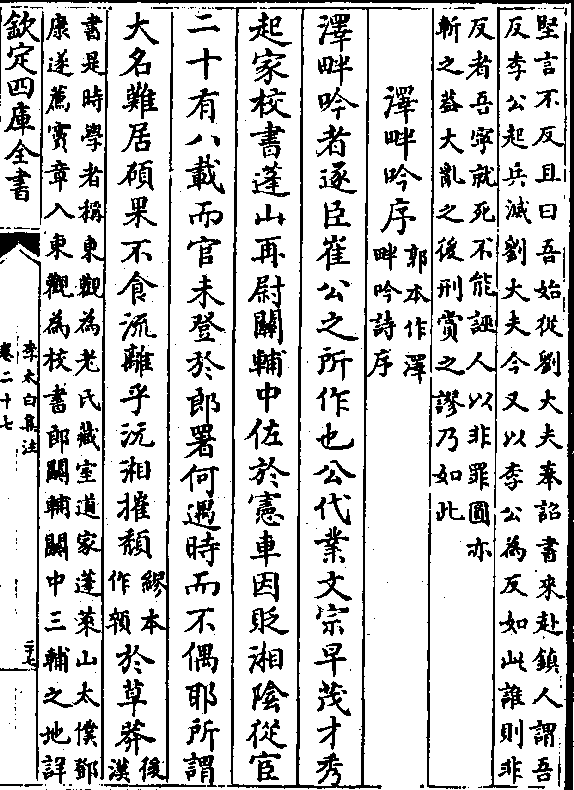 堅言不反且曰吾始從劉大夫奉詔書來赴鎮人謂吾
反李公起兵滅劉大夫今又以李公為反如此誰則非
反者吾寧就死不能誣人以非罪圓亦
斬之葢大亂之後刑賞之謬乃如此
澤畔吟序郭本作澤
畔吟詩序
澤畔吟者逐臣崔公之所作也公代業文宗早茂才秀
起家校書蓬山再尉關輔中佐於憲車因貶湘陰從宦
二十有八載而官未登於郎署何遇時而不偶耶所謂
大名難居碩果不食流離乎沅湘摧頹繆本
作顇於草莽後
漢
書是時學者稱東觀為老氏藏室道家蓬萊山太僕鄧
康遂薦竇章入東觀為校書郎關輔關中三輔之地詳
欽定四庫全書
李太白集注
卷二十七
二七